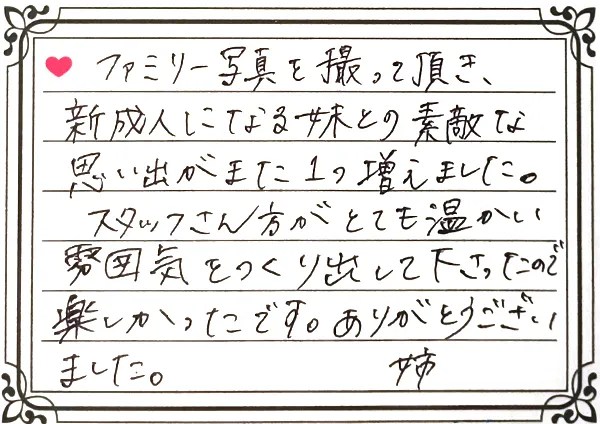 ファミリー写真を撮って頂き、
新成人になる妹との素敵な
思い出がまた1つ増えました。
スタッフさん方がとても温かい
雰囲気をつくり出して下さったので
楽しかったです。ありがとうござい
ました。 姉